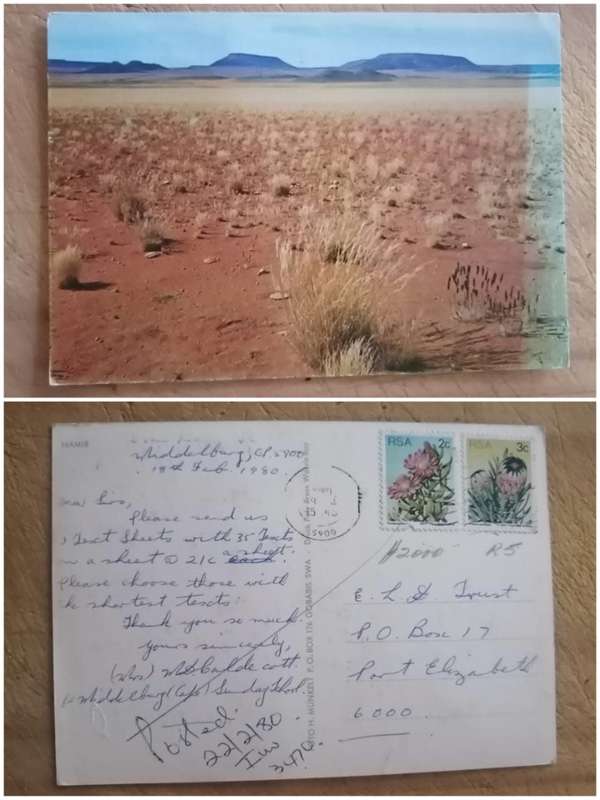 NAMIB
Middelburg, CP. 5900
18th Feb. 1980.
Sirs,
Please send us
Text Sheets with 35 Texts
on a sheet @ 21c a sheet.
Please choose those with
the shortest texts.
Thank you so much.
Yours sincerely,
(Mrs)
Middelburg (Cape) Sunday School.
Posted.
22/2/80
3470.
PHOTO H. MÜNKEL P.O. BOX 176 GOBABIS SWA.
5900
RSA 2c
RSA 3c
2000 R5
E. L. D. Trust
P.O. Box 17
Port Elizabeth
6000.